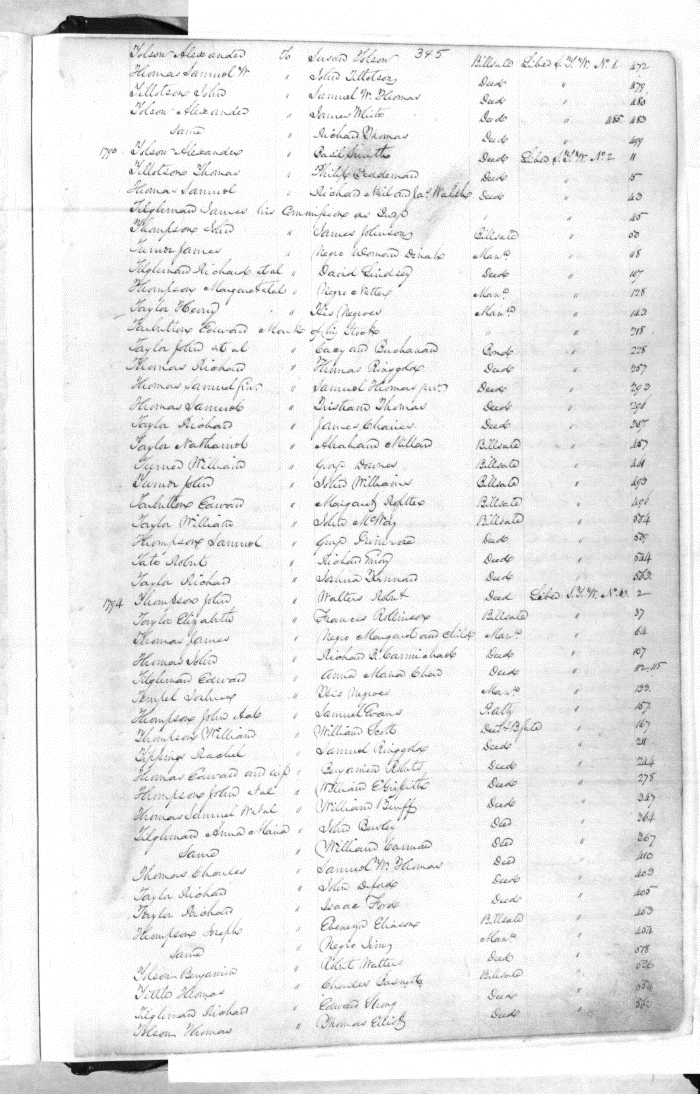 345
Tolson Alexander To Susan Tolson Billsale Liber S.T.W. No. 1. 472
Thomas Samuel W. " John Tillotson Deed " 479
Tillotson John " Samuel W. Thomas Deed " 480
Tolson Alexander " James White Deed " 485 483
same " Richard Thomas Deed " 499
1790. Tolson Alexander " Basil Smith Deed Liber S.T.W. No. 2 11
Tillotson Thomas " Philip Deed " 15
Thomas Samuel " Richard Neil and Jas. Walsh Deed " 43
Tilghman James his Commission as Insp " " 45
Thompson John " James Johnson Billsale " 50
Turner James " Negro Woman Dinah Mann. " 68
Tilghman Richard et al " David Lindsey Deed " 107
Thompson Margaret et al " Negro Mann. " 128
Taylor Henry " His Negroes Mann. " 143
Tarbutton Edward Mark of his Stock " " 218
Taylor John et al " and Buchanan Bond " 228
Thomas Richard " Thomas Ringgold Deed " 257
Thomas Samuel Junr. " Samuel Thomas junr. Deed " 293
Thomas Samuel " Tristram Thomas Deed " 296
Taylor Richard " James Chaires Deed " 357
Taylor Nathaniel " Abraham Millard Billsale " 457
Turner William " Geoe. Downes Billsale " 461
Turner John " John Williams Billsale " 493
Tarbutton Edward " Margaret Billsale " 496
Taylor William " John McVay Billsale " 504
Thompson Samuel " Geoe. Primrose Deed " 509
Tate Robert " Richard Deed " 544
Taylor Richard " Joshua Kennard Deed " 563
1794 Thompson John " Walters Robert Deed Liber S.T.W. No. 2
Taylor Elizabeth " Francis Rollinson Billsale " 37
Thomas James " Negro Margaret and Child Mann. " 64
Thomas John " Richard B. Carmichael Deed " 107
Tilghman Edward " Anna Maria Chew Deed " 112-115
Tempel " His Negroes Mann. " 133
Thompson John et al " Samuel Evans " 157
Thompson William " William Scott Deed & B sale " 167
Tippings Rachel " Samuel Ringgold Deed " 211
Thomas Edward and wife " Benjamin Roberts Deed " 244
Thompson John et al " William E Griffith Deed " 278
Thomas Samuel W et al " William Bruff Deed " 347
Tilghman Anna Maria " John Burley Deed " 364
same " William Deed " 367
Thomas Charles " Samuel W. Thomas Deed " 410
Taylor Richard " John Deford Deed " 403
Taylor Richard " Isaac Ford Deed " 405
Thompson Joseph " Ebenezer Eliason Billsale " 463
same " Negro Mann. " 454
Tolson Benjamin " Robert Walters Deed " 518
Tittle Thomas " Charles Billsale " 526
Tilghman Richard " Edward Strong Deed " 554
Tolson Thomas " Thomas Elliott Deed " 562